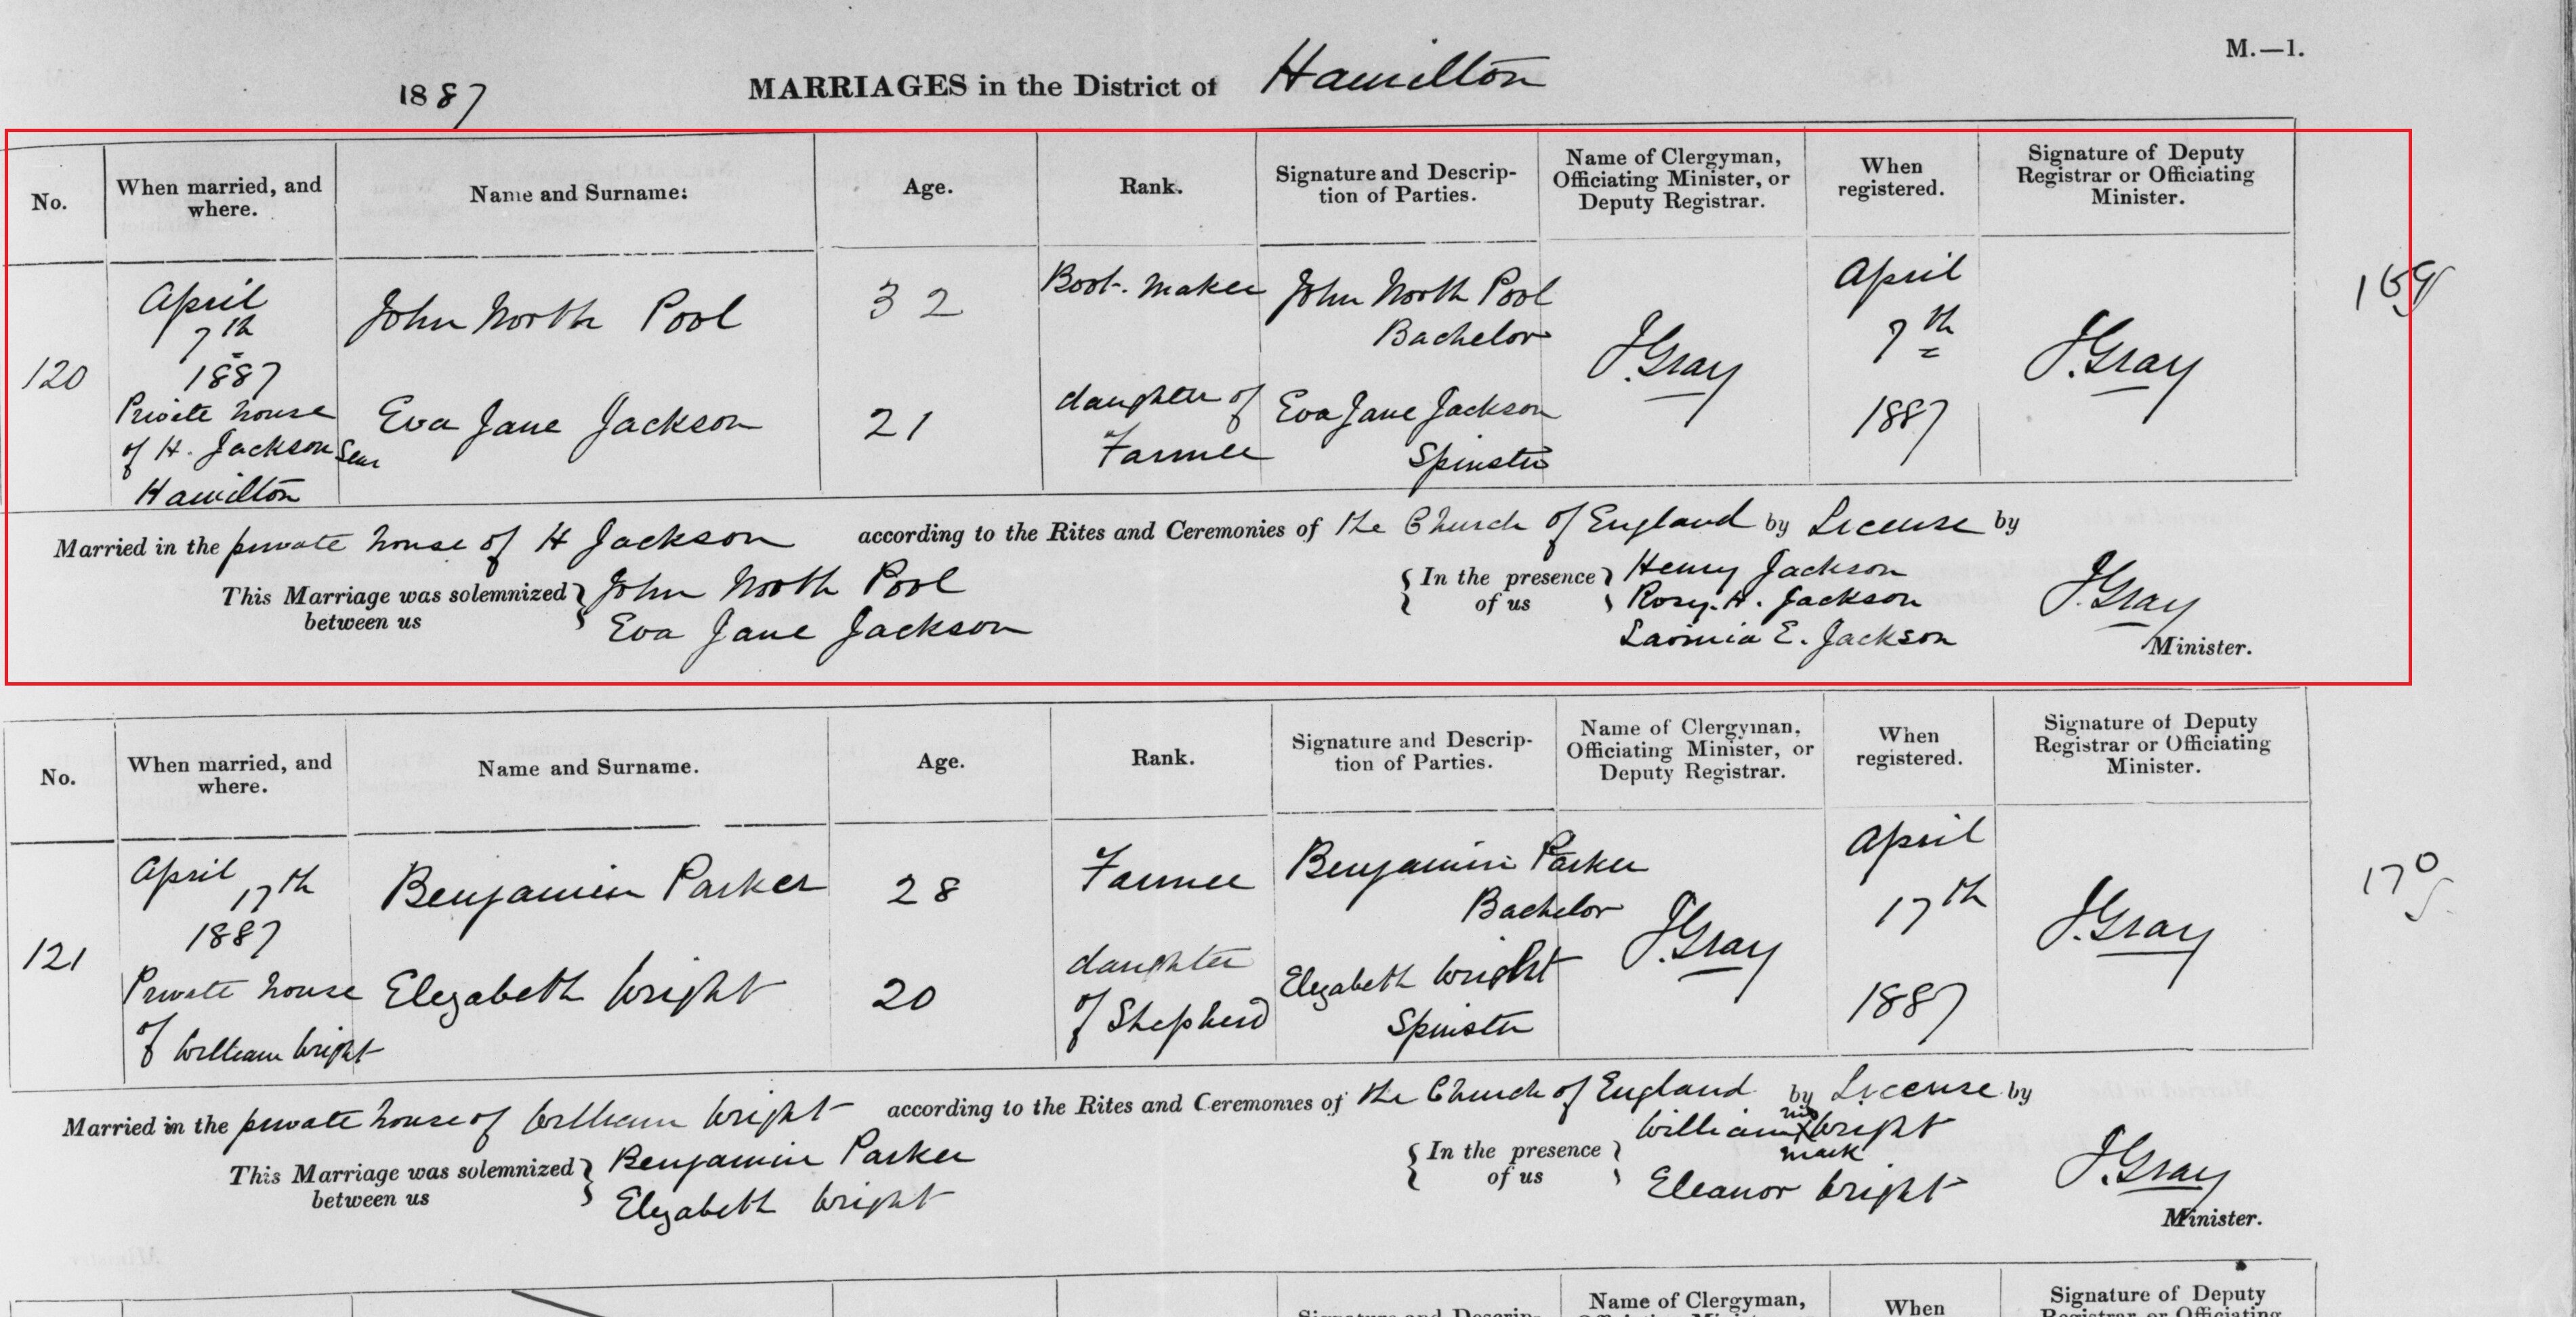 M.—1.
1887 MARRIAGES in the District of Hamilton
No. When married, and where. Name and Surname. Age. Rank. Signature and Description of Parties. Name of Clergyman, Officiating Minister, or Deputy Registrar. When registered. Signature of Deputy Registrar or Officiating Minister.
120
April
7th
1887
Private house
of H. Jackson Senr
Hamilton
John North Pool
Eva Jane Jackson
32
21
Boot-maker
daughter of
Farmer
John North Pool
Bachelor
Eva Jane Jackson
Spinster
J. Gray
April
7th
1887
J. Gray
169
Married in the private house of H Jackson according to the Rites and Ceremonies of the Church of England by License by
This Marriage was solemnized between us
John North Pool
Eva Jane Jackson
In the presence of us
Henry Jackson
Rosy. H. Jackson
E. Jackson
J. Gray
Minister.
No. When married, and where. Name and Surname. Age. Rank. Signature and Description of Parties. Name of Clergyman, Officiating Minister, or Deputy Registrar. When registered. Signature of Deputy Registrar or Officiating Minister.
121
April
17th
1887
Private house
of William Wright
Benjamin Parker
Elizabeth Wright
28
20
Farmer
daughter
of Shepherd
Benjamin Parker
Bachelor
Elizabeth Wright
Spinster
J. Gray
April
17th
1887
J. Gray
170
Married in the private house of William Wright according to the Rites and Ceremonies of the Church of England by License by
This Marriage was solemnized between us
Benjamin Parker
Elizabeth Wright
In the presence of us
his
William X Wright
mark
Eleanor Wright
J. Gray
Minister.
Name of Clergyman,
When
Signature of Deputy